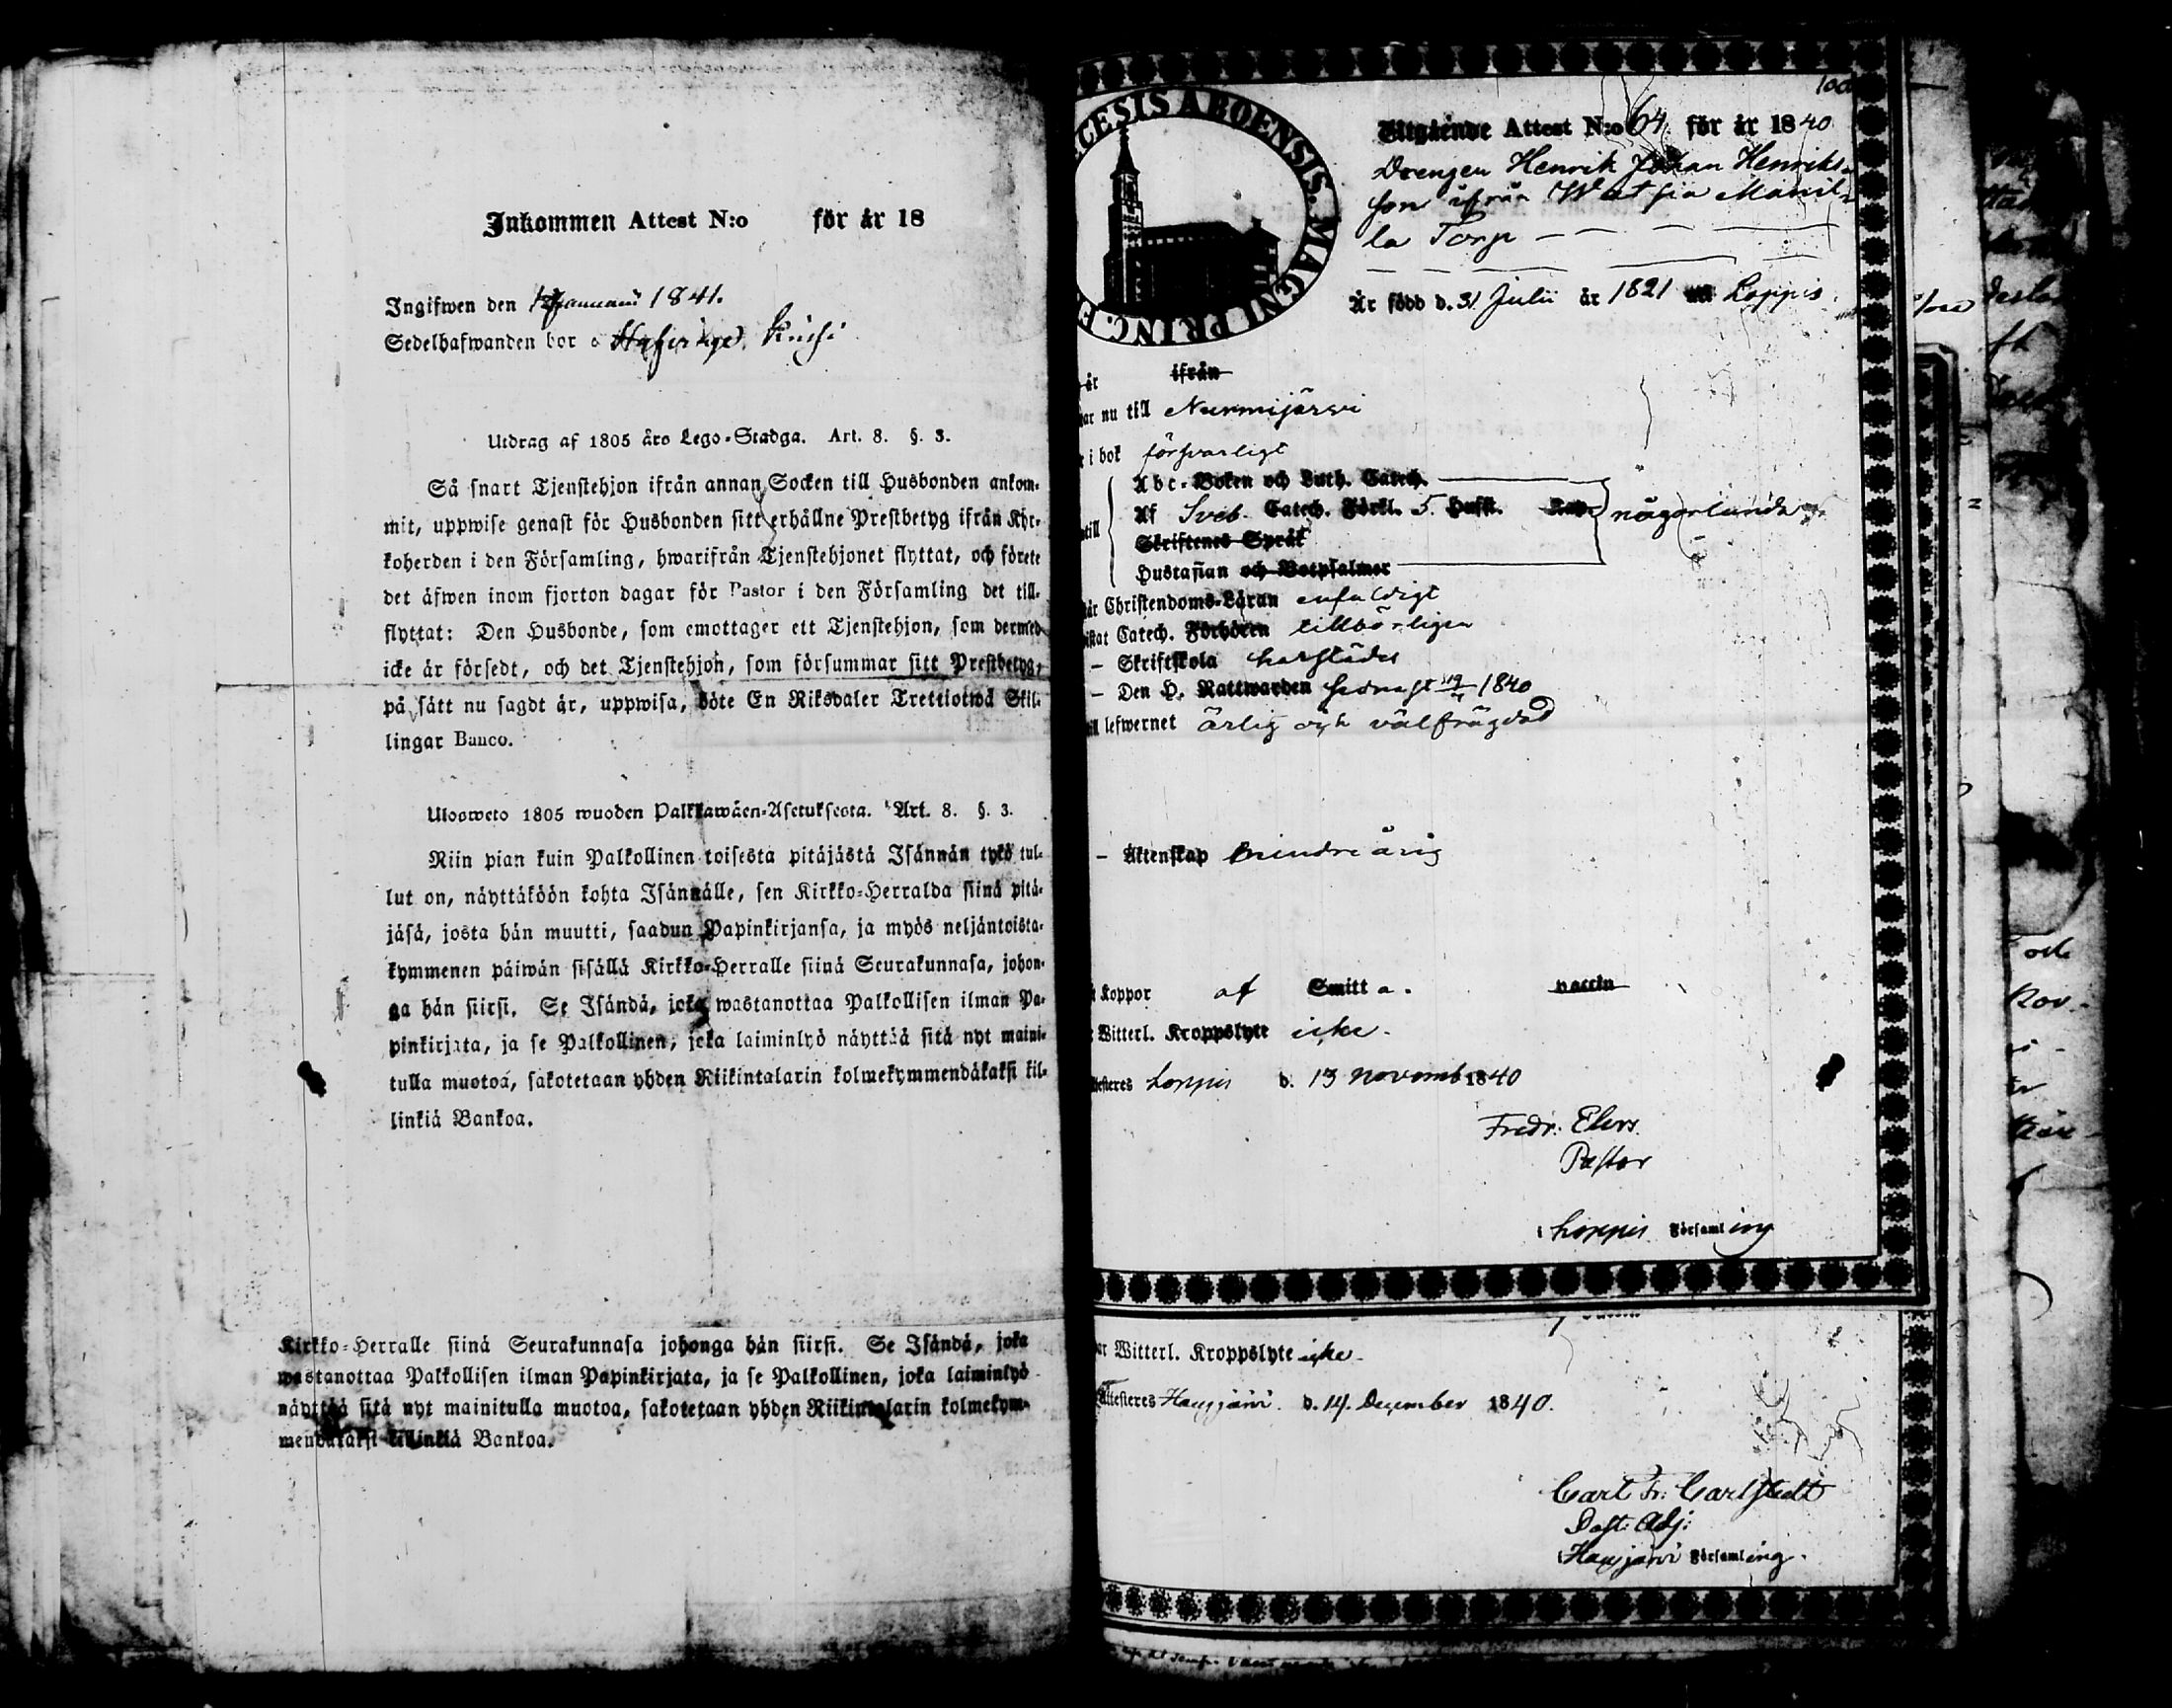 Inkommen Attest N:o för år 18
Ingifwen den Januarii 1841.
Sedelhafwanden bor
Utdrag af 1805 års Lego-Stadga. Art. 8. §. 3.
Så snart Tjenstehjon ifrån annan Socken till Husbonden ankom-
mit, uppwise genast för Husbonden sitt erhållne Prestbetyg ifrån Kyr-
koherden i den Församling, hwarifrån Tjenstehjonet flyttat, och förete
det äfwen inom fjorton dagar för Pastor i den Församling det till-
flyttat: Den Husbonde, som emottager ett Tjenstehjon, som dermed
icke är försedt, och det Tjenstehjon, som försummar sitt Prestbetyg,
på sätt nu sagdt är, uppwisa, böte En Riksdaler Trettiotwå Skil-
lingar Banco.
Ulosweto 1805 wuoden Palkkawäen-Asetuksesta. Art. 8. §. 3.
Niin pian kuin Palkollinen toisesta pitäjästä Isännän tykö tul-
lut on, näyttäköön kohta Isännälle, sen Kirkko-Herralda siinä pitä-
jäsä, josta hän muutti, saadun Papinkirjansa, ja myös neljäntoista-
kymmenen päiwän sisällä Kirkko-Herralle siinä Seurakunnasa, johon-
ga hän siirsi. Se Isändä, joka wastanottaa Palkollisen ilman Pa-
pinkirjata, ja se Palkollinen, joka laiminlyö näyttää sitä nyt maini-
tulla muotoa, sakotetaan yhden Riikintalarin kolmekymmendäkaksi kil-
linkiä Bankoa.
Kirkko-Herralle siinä Seurakunnasa johonga hän siirsi. Se Isändä, joka
wastanottaa Palkollisen ilman Papinkirjata, ja se Palkollinen, joka laiminlyö
näyttää sitä nyt mainitulla muotoa, sakotetaan yhden Riikintalarin kolmekym-
mendäkaksi killinkiä Bankoa.
100
CESIS ABOENSIS. MAGNI PRINC. F
Utgående Attest N:o 64. för år 1840
Drengen Henrik Johan Henriks-
son ifrån Watsia Mänti-
la Torp
Är född d. 31 Julii år 1821 Loppis
är ifrån
ar nu till Nurmijärwi
i bok försvarligt
Abc-Boken och Luth. Catech.
Af Sveb. Catech. Förkl. 5. Hufst. Kap. någorlunda
Skriftenes Språk
Hustaflan och Botpsalmer
år Christendoms-Läran enfaldigt
istat Catech. Förhören tillbörligen
- Skriftskola härstädes
- Den H. Nattwarden sednast 1840
ill lefwernet ärlig och välfrägdad
- Äktenskap minderårig
t Koppor af Smitta. vaccin
Witterl. Kroppslyte icke.
ttesteres Loppis d. 13 Novemb 1840
Fredr: Elers.
Pastor
i Loppis Församling
ar Witterl. Kroppslyte icke.
Attesteres Hausjärvi. d. 14. December 1840.
Carl Fr: Carlstedt
Past: Adj:
i Hausjärvi Församling.